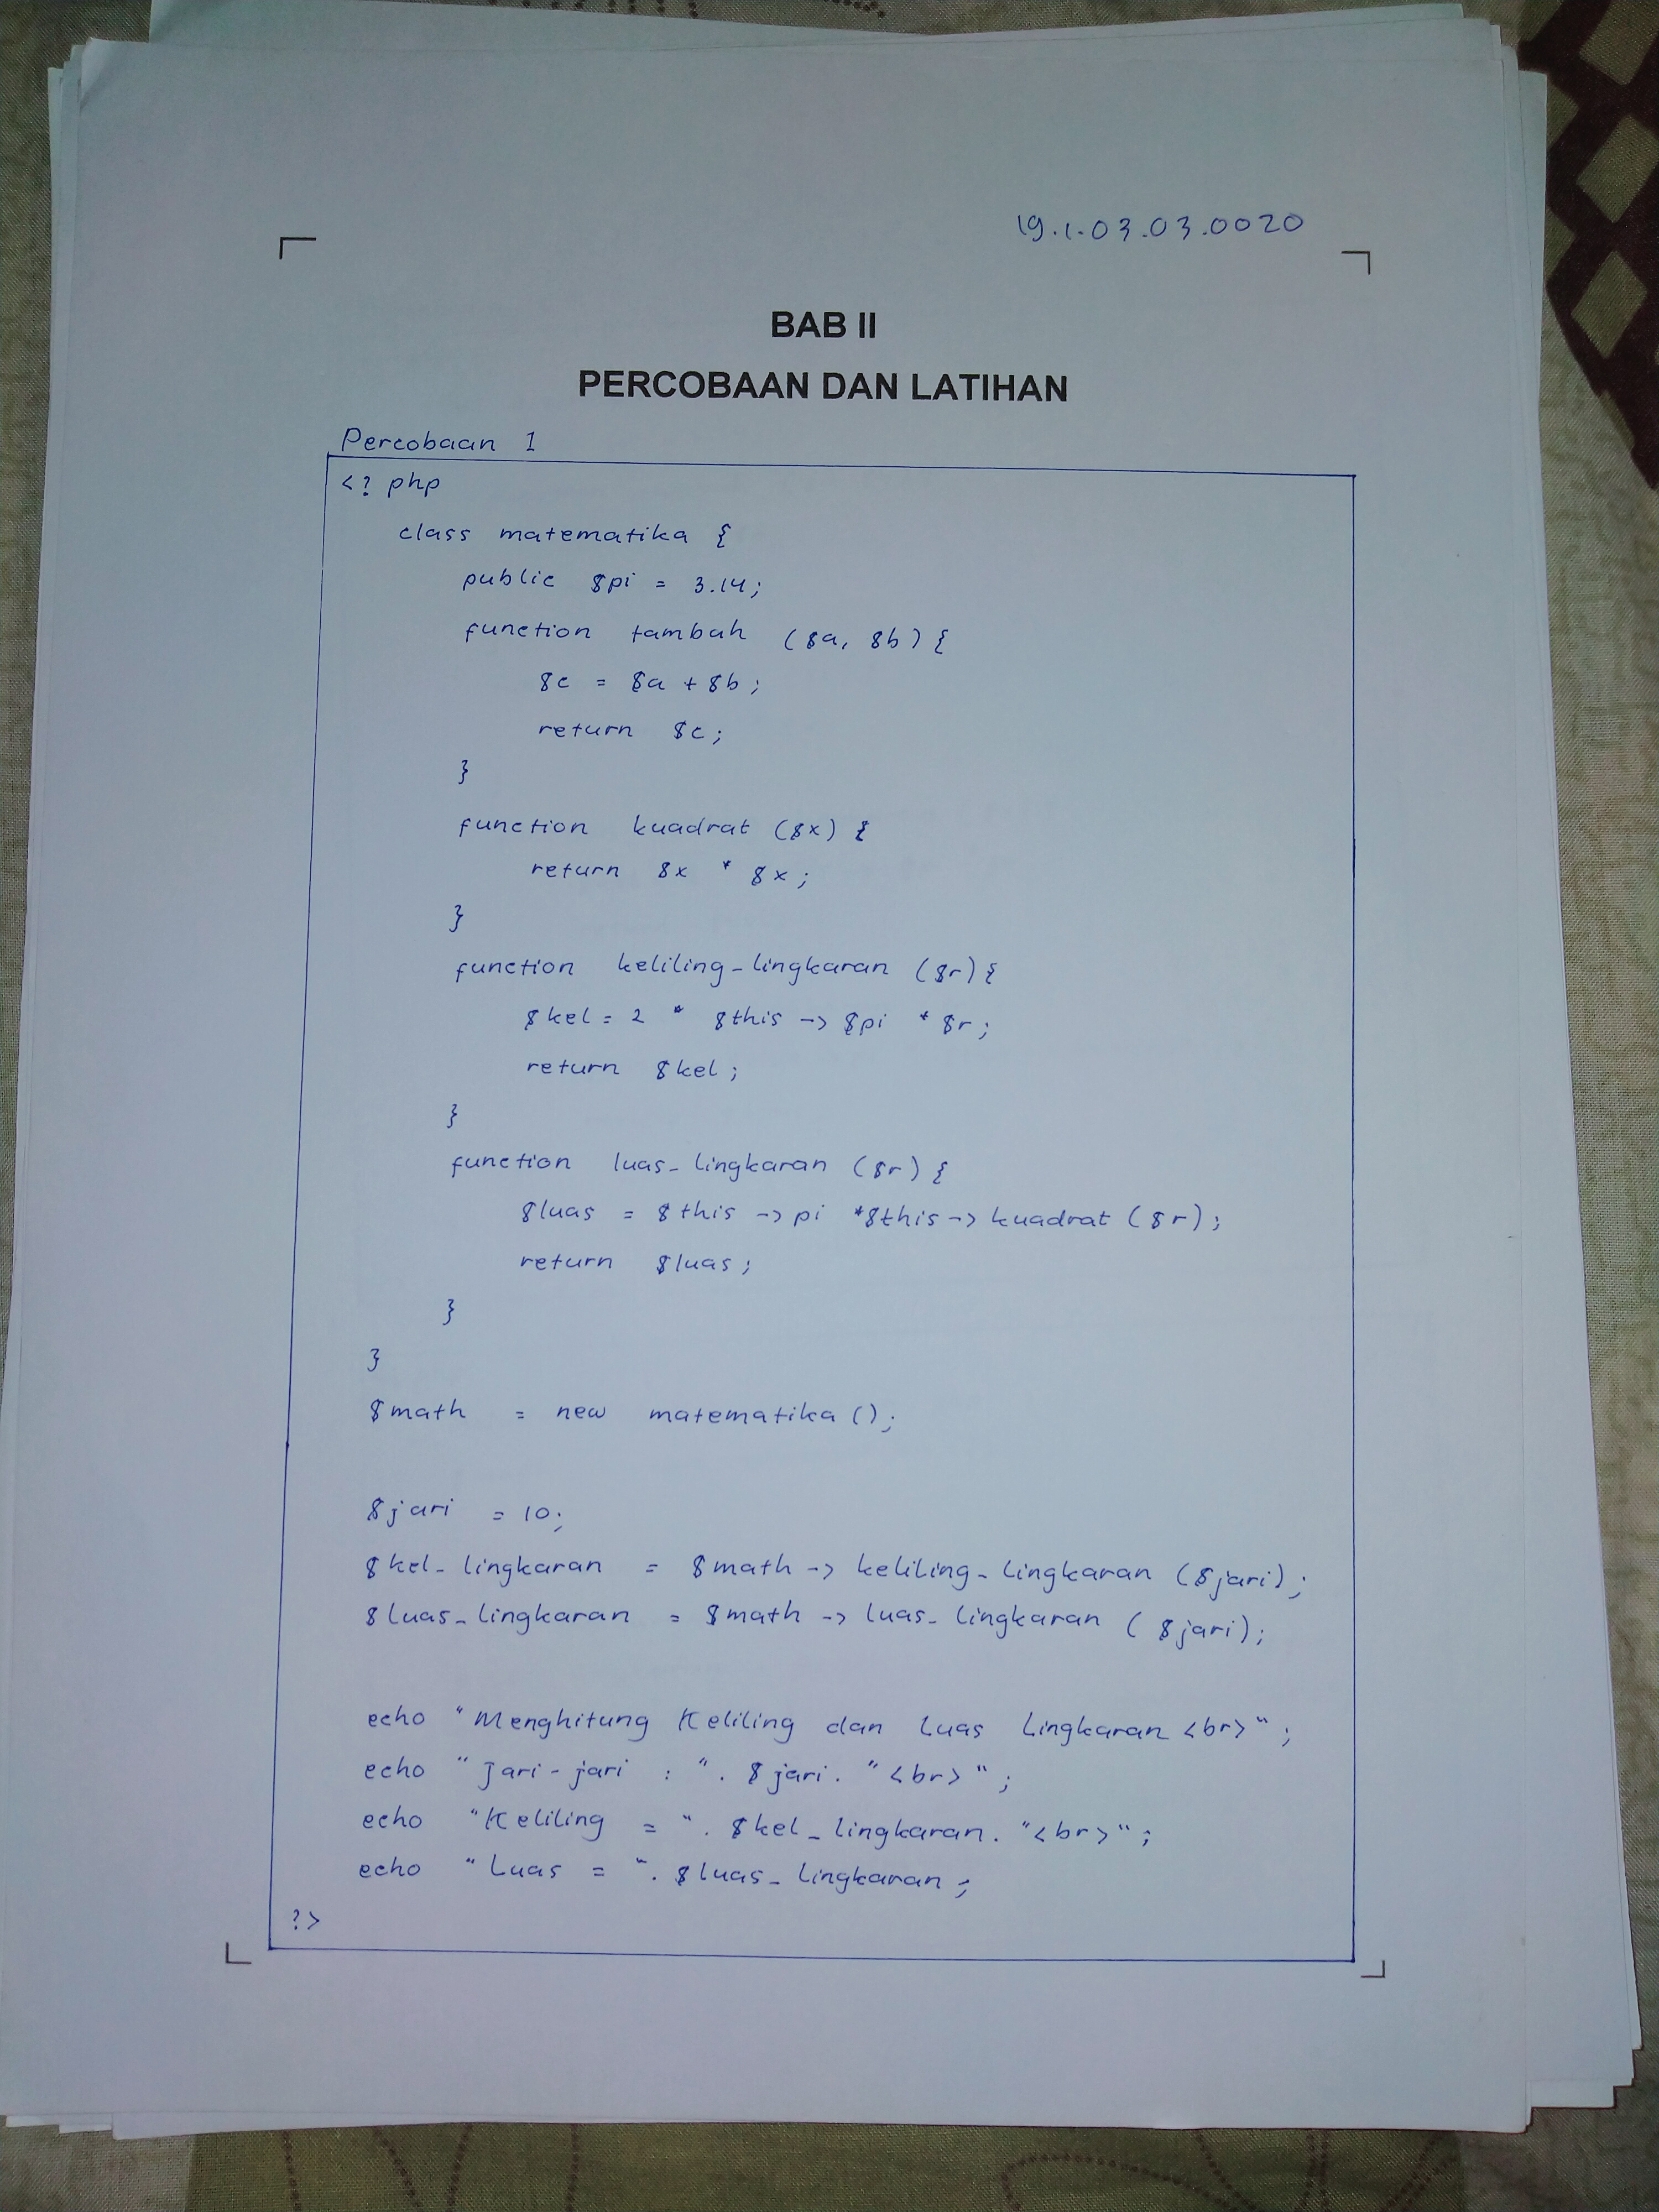 19.1.03.03.0020
BAB II
PERCOBAAN DAN LATIHAN
Percobaan 1
<? php
class matematika {
public $pi = 3.14;
function tambah ($a, $b) {
$c = $a + $b;
return $c;
}
function kuadrat ($x) {
return $x * $x;
}
function keliling_lingkaran ($r) {
$kel = 2 * $this -> $pi * $r;
return $kel;
}
function luas_lingkaran ($r) {
$luas = $this -> pi * $this -> kuadrat ($r);
return $luas;
}
}
$math = new matematika ();
$jari = 10;
$kel_lingkaran = $math -> keliling_lingkaran ($jari);
$luas_lingkaran = $math -> luas_lingkaran ($jari);
echo "Menghitung Keliling dan Luas Lingkaran <br>";
echo "Jari-jari : ". $jari. "<br>";
echo "Keliling = ". $kel_lingkaran. "<br>";
echo "Luas = ". $luas_lingkaran;
?>